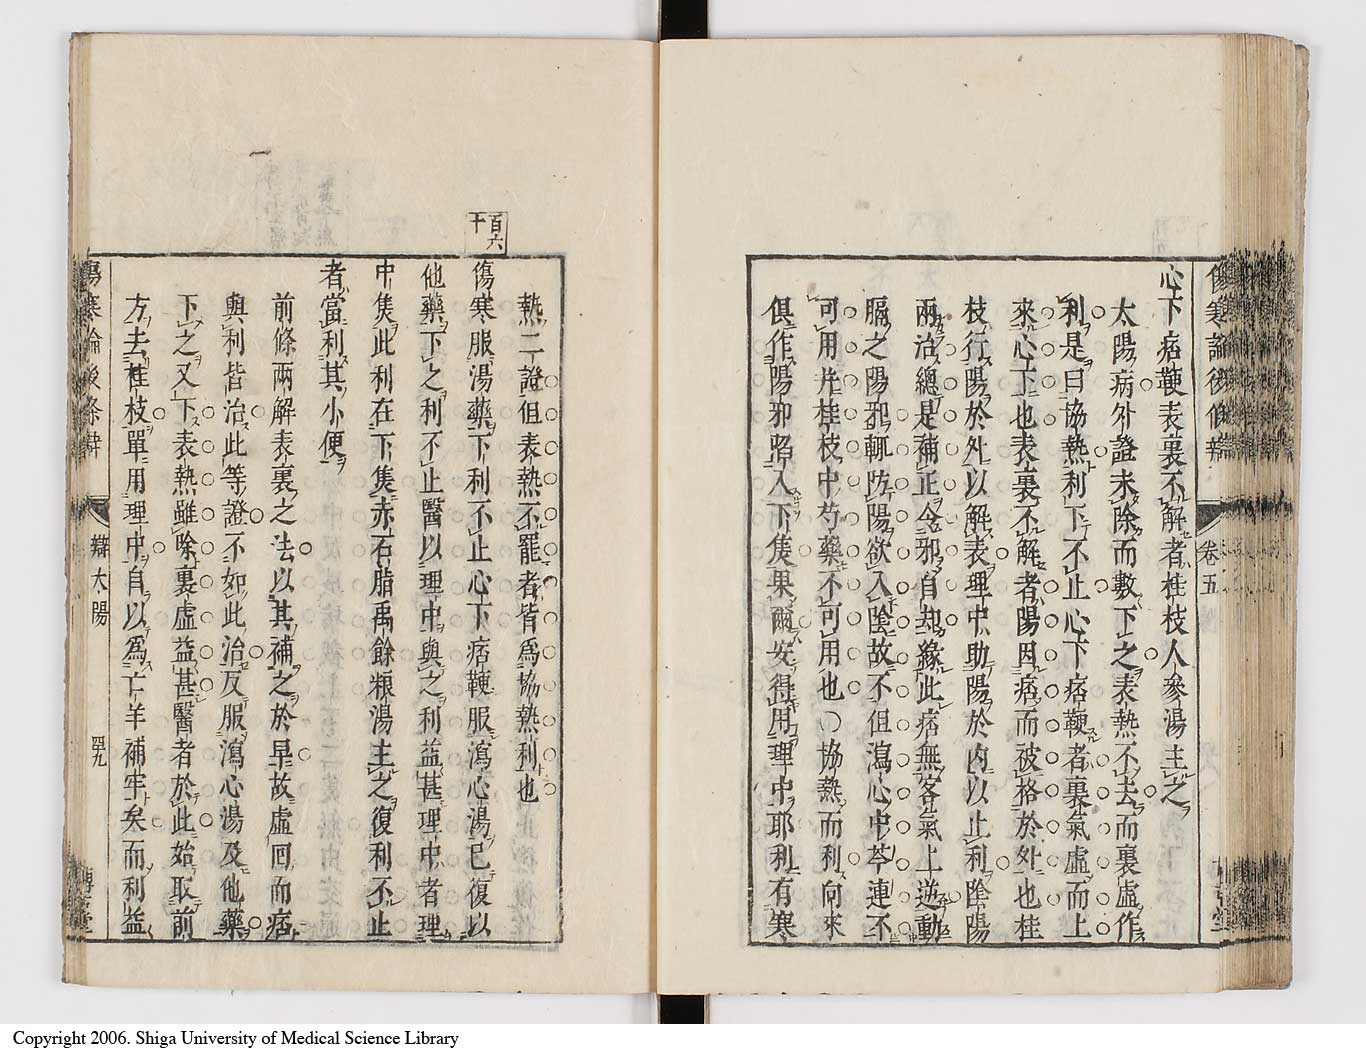 心下痞鞕表裏不解者桂枝人參湯主之
太陽病外證未除而數下之表熱不去而裏虛作
利是曰協熱利下不止心下痞鞕者裏氣虛而上
來心下也表裏不解者陽因痞而被格於外也桂
枝行陽於外以解表理中助陽於內以止利陰陽
兩治總是補正令邪自却緣此痞無客氣上逆動
膈之陽邪輒防陽欲入陰故不但瀉心中芩連不
可用並桂枝中芍藥不可用也○協熱而利向來
俱作陽邪陷入下焦果爾安得用理中耶利有寒
傷寒論後條辨
卷五
熱二證但表熱不罷者皆爲協熱利也
百六
十
傷寒服湯藥下利不止心下痞鞕服瀉心湯已復以
他藥下之利不止醫以理中與之利益甚理中者理
中焦此利在下焦赤石脂禹餘糧湯主之復利不止
者當利其小便
前條兩解表裏之法以其補之於早故虛回而痞
與利皆治此等證不如此治反服瀉心湯及他藥
下之又下表熱雖除裏虛益甚醫者於此始取前
方去桂枝單用理中自以爲亡羊補牢矣而利益
傷寒論後條辨
辯太陽
四九
Copyright 2006. Shiga University of Medical Science Library